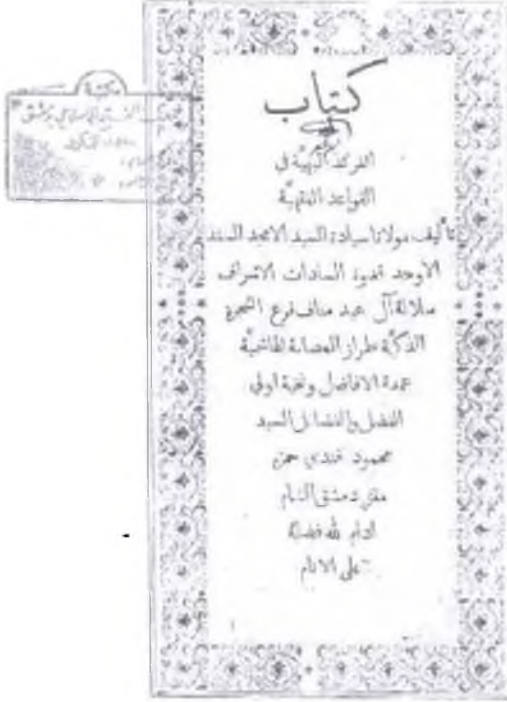 كتاب
الفرائد البهية في
القواعد الفقهية
تأليف مولانا سيادة السيد الامجد السند
الاوحد قدوة السادات الاشراف
سلالة آل عبد مناف فرع الشجرة
الذكية طراز العصابة الهاشمية
عمدة الافاضل ونخبة اولي
الفضل والفضائل السيد
محمود فندي حمزه
مفتي دمشق الشام
ادام لله فضله
على الانام
مكتبة